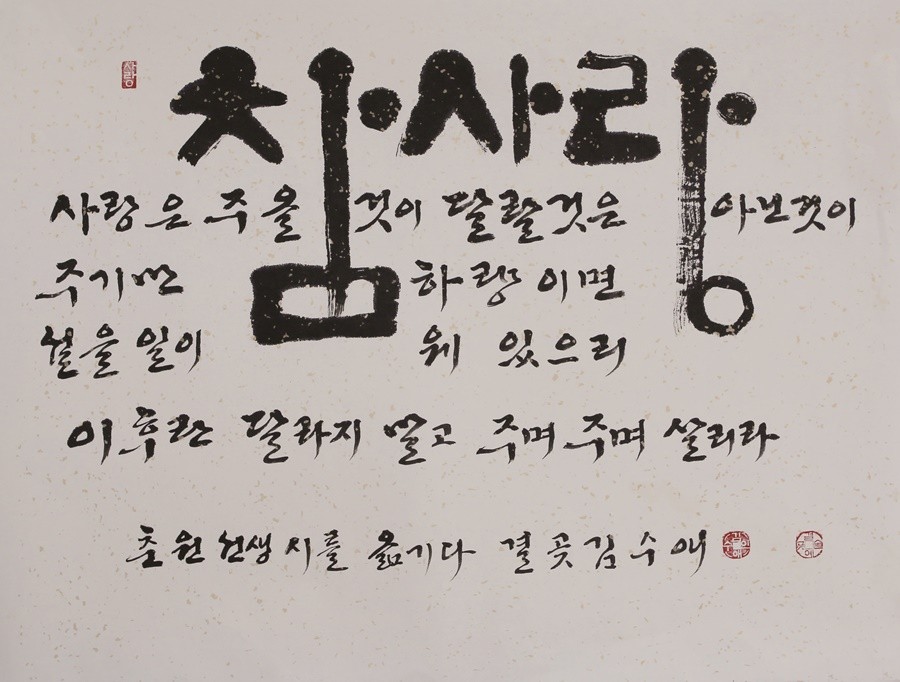 참사랑
사랑은 주을 것이 달랄것은 아닌것이
주기만 하량이면
설을 일이 웨 있으리
이후란 달라지 말고 주며 주며 살리라
춘원선생 시를 옮기다 결곶 김수애